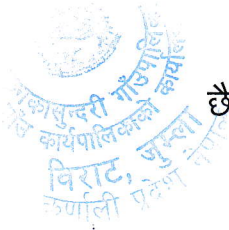 कासुन्दरी गाँउपालि
गाँउ कार्यपालिकाको कार्याल
विराट, जुम्ला
कर्णाली प्रदेश नेपाल